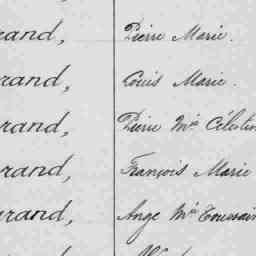 rand, Pierre Marie.
rand, Louis Marie.
rand, Pierre Mie Célestin
rand, François Marie
rand, Ange Mie Toussain